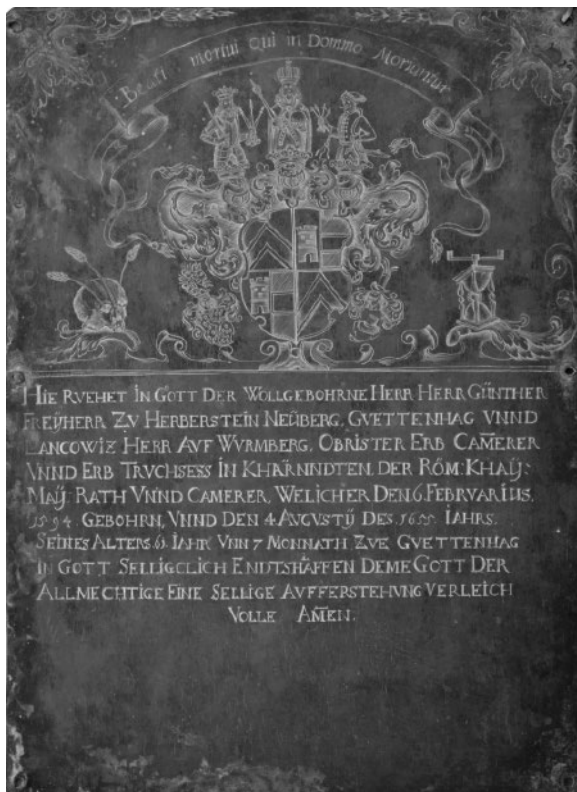 Beati mortui qui in Domino Moriuntur
HIE RVEHET IN GOTT DER WOLLGEBOHRNE HERR HERR GÜNTHER
FREŸHERR ZV HERBERSTEIN NEŬBERG, GVETTENHAG VNND
LANCOWIZ HERR AVF WVRMBERG, OBRISTER ERB CAM̄ERER
VNND ERB TRVCHSESS IN KHÄRNNDTEN, DER RÖM: KHAŸ:
MAŸ: RATH VNND CAMERER, WELICHER DEN 6. FEBRVARIUS,
1594. GEBOHRN, VNND DEN 4 AVGVSTŸ DES 1655. IAHRS.
SEINES ALTERS 61. IAHR VNN 7 MONNATH ZVE GVETTENHAG
IN GOTT SELLIGCLICH ENDTSHAFFEN DEME GOTT DER
ALLMECHTIGE EINE SELLIGE AVFFERSTEHVNG VERLEICH
VOLLE AM̄EN.